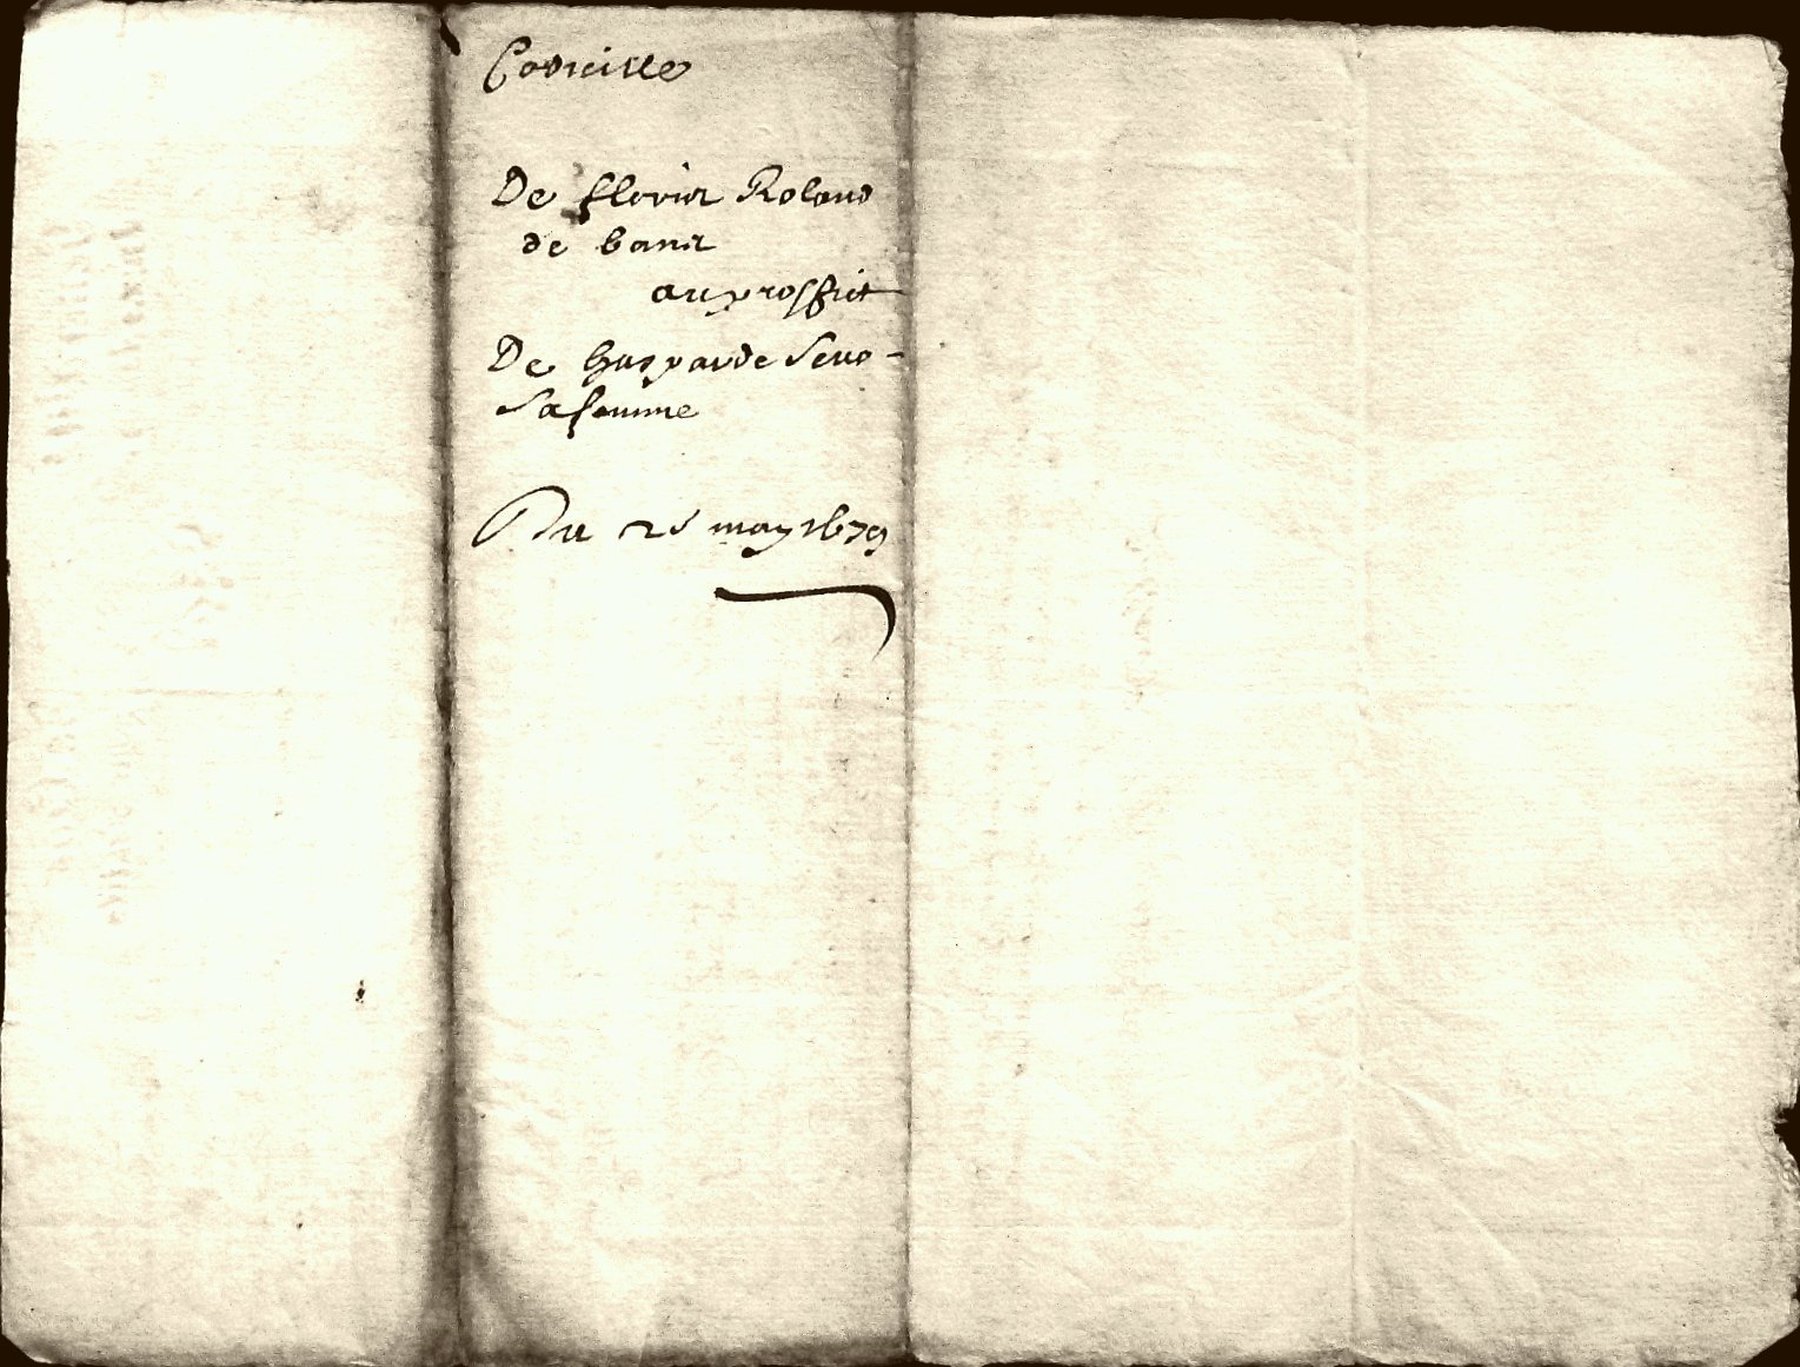 Codicille
De flevier Roland
de banit
au proffict
De Gusparde Seuo -
Sa femme
Du 25 may 1679